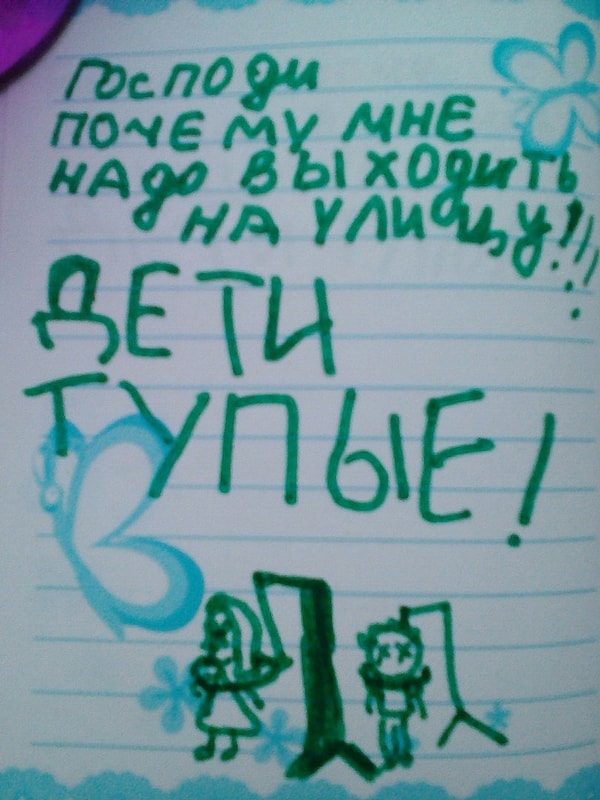 Господи
почему мне
надо выходить
на улицу!!!
ДЕТИ
ТУПЫЕ!